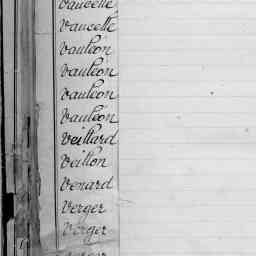 Vaucelle
Vaucelle
Vauléon
Vauléon
Vauléon
Vauléon
Veillard
Veillon
Venard
Verger
Verger
Verger